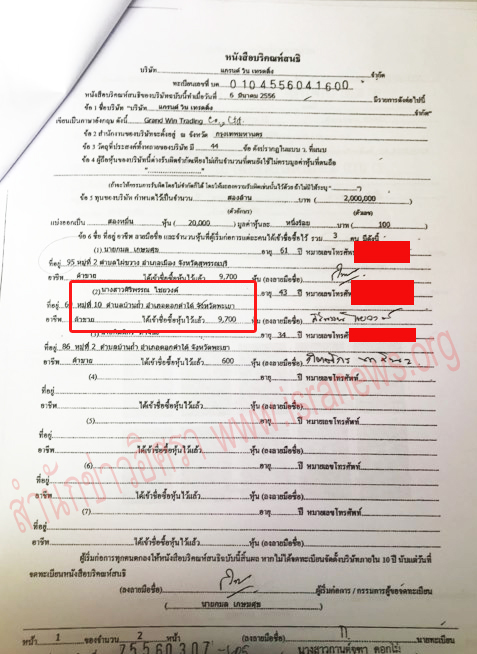 หนังสือบริคณห์สนธิ
บริษัท แกรนด์ วิน เทรดดิ้ง จำกัด
ทะเบียนเลขที่ บค. 0104556041600
หนังสือบริคณห์สนธิของบริษัทฉบับนี้ทำเมื่อวันที่ 6 มีนาคม 2556 มีรายการดังต่อไปนี้
ข้อ 1 ชื่อบริษัท "บริษัท แกรนด์ วิน เทรดดิ้ง จำกัด"
เขียนเป็นภาษาอังกฤษ ดังนี้ Grand Win Trading Co., Ltd.
ข้อ 2 สำนักงานของบริษัทจะตั้งอยู่ ณ จังหวัด กรุงเทพมหานคร
ข้อ 3 วัตถุที่ประสงค์ทั้งหลายของบริษัท มี 44 ข้อ ดังปรากฏในแบบ ว. ที่แนบ
ข้อ 4 ผู้ถือหุ้นของบริษัทนี้ต่างรับผิดจำกัดเพียงไม่เกินจำนวนเงินที่ตนยังใช้ไม่ครบมูลค่าหุ้นที่ตนถือ
ข้อ 5 ทุนของบริษัท กำหนดไว้เป็นจำนวน สองล้าน บาท ( 2,000,000 )
(ตัวอักษร) (ตัวเลข)
แบ่งออกเป็น สองหมื่น หุ้น ( 20,000 ) มูลค่าหุ้นละ หนึ่งร้อย บาท ( 100 )
ข้อ 6 ชื่อ ที่อยู่ อาชีพ ลายมือชื่อ และจำนวนหุ้นที่ผู้เริ่มก่อการแต่ละคนได้เข้าชื่อซื้อไว้ รวม 3 คน มีดังนี้
(1) นายกมล เกษมศุข อายุ 61 ปี หมายเลขโทรศัพท์
ที่อยู่ 95 หมู่ที่ 2 ตำบลไผ่ขวาง อำเภอเมือง จังหวัดสุพรรณบุรี
อาชีพ ค้าขาย ได้เข้าชื่อซื้อหุ้นไว้แล้ว 9,700 หุ้น (ลงลายมือชื่อ)
(2) นางสาวศิริพรรณ ไชยวงค์ อายุ 43 ปี หมายเลขโทรศัพท์
หมู่ที่ 10 ตำบลบ้านถ้ำ อำเภอดอกคำใต้ จังหวัดพะเยา
ค้าขาย ได้เข้าชื่อซื้อหุ้นไว้แล้ว 9,700 หุ้น (ลงลายมือชื่อ)
อายุ 34 ปี หมายเลขโทรศัพท์
ที่อยู่ 86 หมู่ที่ 2 ตำบลบ้านถ้ำ อำเภอดอกคำใต้ จังหวัดพะเยา
อาชีพ ค้าขาย ได้เข้าชื่อซื้อหุ้นไว้แล้ว 600 หุ้น (ลงลายมือชื่อ)
(4) อายุ ปี หมายเลขโทรศัพท์
ที่อยู่
อาชีพ ได้เข้าชื่อซื้อหุ้นไว้แล้ว หุ้น (ลงลายมือชื่อ)
(5) อายุ ปี หมายเลขโทรศัพท์
ที่อยู่
อาชีพ ได้เข้าชื่อซื้อหุ้นไว้แล้ว หุ้น (ลงลายมือชื่อ)
(6) อายุ ปี หมายเลขโทรศัพท์
ที่อยู่
อาชีพ ได้เข้าชื่อซื้อหุ้นไว้แล้ว หุ้น (ลงลายมือชื่อ)
(7) อายุ ปี หมายเลขโทรศัพท์
ที่อยู่
อาชีพ ได้เข้าชื่อซื้อหุ้นไว้แล้ว หุ้น (ลงลายมือชื่อ)
ผู้เริ่มก่อการทุกคนตกลงให้หนังสือบริคณห์สนธิฉบับนี้สิ้นผล หากไม่ได้จดทะเบียนจัดตั้งบริษัทภายใน 10 ปี นับแต่วันที่
จดทะเบียนหนังสือบริคณห์สนธิ
(ลงลายมือชื่อ) ผู้เริ่มก่อการ / กรรมการผู้ขอจดทะเบียน
( นายกมล เกษมศุข )
หน้า 1 ของจำนวน 2 หน้า (ลงลายมือชื่อ) นายทะเบียน
สำนักข่าวอิศรา www.isranews.org